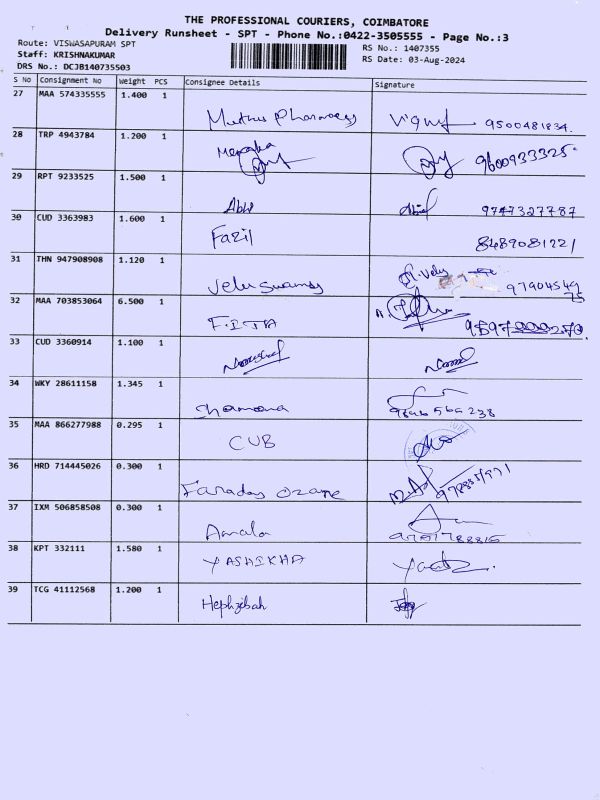 THE PROFESSIONAL COURIERS, COIMBATORE
Delivery Runsheet - SPT - Phone No.:0422-3505555 - Page No.:3
Route: VISWASAPURAM SPT
Staff: KRISHNAKUMAR
DRS No.: DCJB140735503
RS No.: 1407355
RS Date: 03-Aug-2024
S No Consignment No Weight PCS Consignee Details Signature
27 MAA 574335555 1.400 1 Muthu Pharmacy 9500481834.
28 TRP 4943784 1.200 1 Menaka 9600933325
29 RPT 9233525 1.500 1 Abi 9747327787
30 CUD 3363983 1.600 1 Fazil 8489081221
31 THN 947908908 1.120 1 Velu Swamy 97904549
75
32 MAA 703853064 6.500 1 FIITJA
33 CUD 3360914 1.100 1
34 WKY 28611158 1.345 1
35 MAA 866277988 0.295 1 CUB
36 HRD 714445026 0.300 1 Faraday Ozone
37 IXM 506858508 0.300 1 Amala
38 KPT 332111 1.580 1 YASHIKHA
39 TCG 41112568 1.200 1 Hephzibah